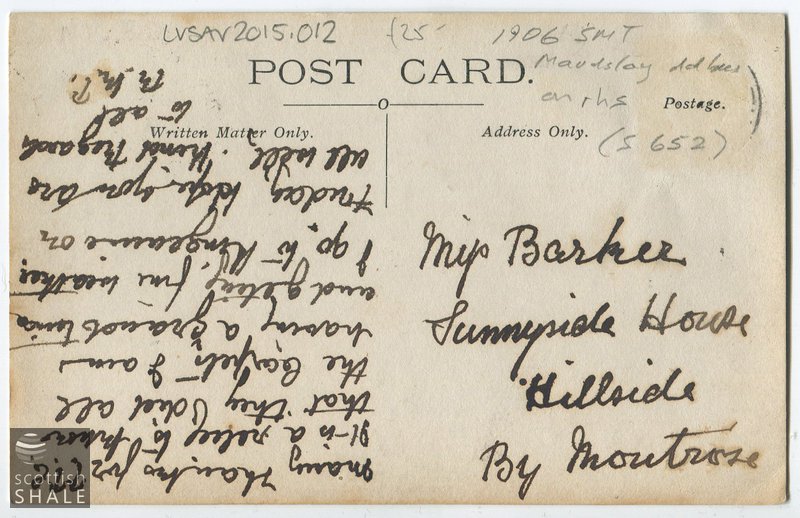 LVSAV2015.012
£25
1906 SMT
Maudslay dd bus
on rhs
(S 652)
POST CARD.
Postage.
Written Matter Only.
Address Only.
Miss Barker
Sunnyside House
Hillside
By Montrose
many thanks for
P.C.
It is a relief to know
that they all
the Carpets I am
having a grand time
and getting fine weather.
I go to Kingennie on
Friday hope you are
all well. Kind Regards
to all
scottish
SHALE